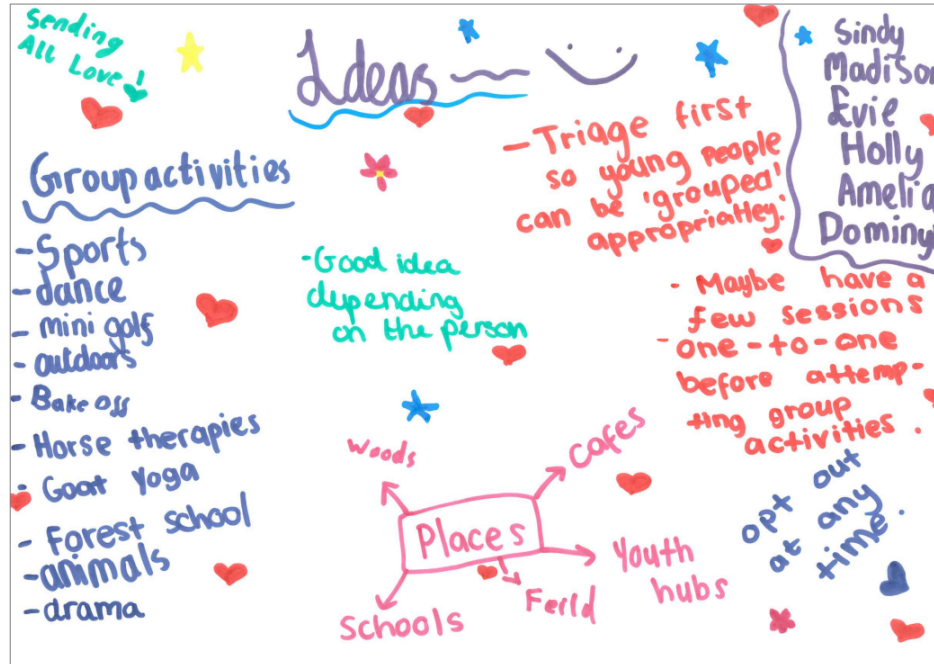 Sending
All Love!
Ideas
Sindy
Madison
Evie
Holly
Amelia
Group activities
- Sports
- dance
- mini golf
- outdoors
- Bake off
- Horse therapies
- Goat yoga
- Forest school
- animals
- drama
- Good idea
depending
on the person
- Triage first
so young people
can be 'grouped'
appropriatley.'
- Maybe have a
few sessions
- one-to-one
before attemp-
ting group
activities.
opt out
at any
time.
Places
Woods
Cafes
Youth
hubs
Feild
Schools